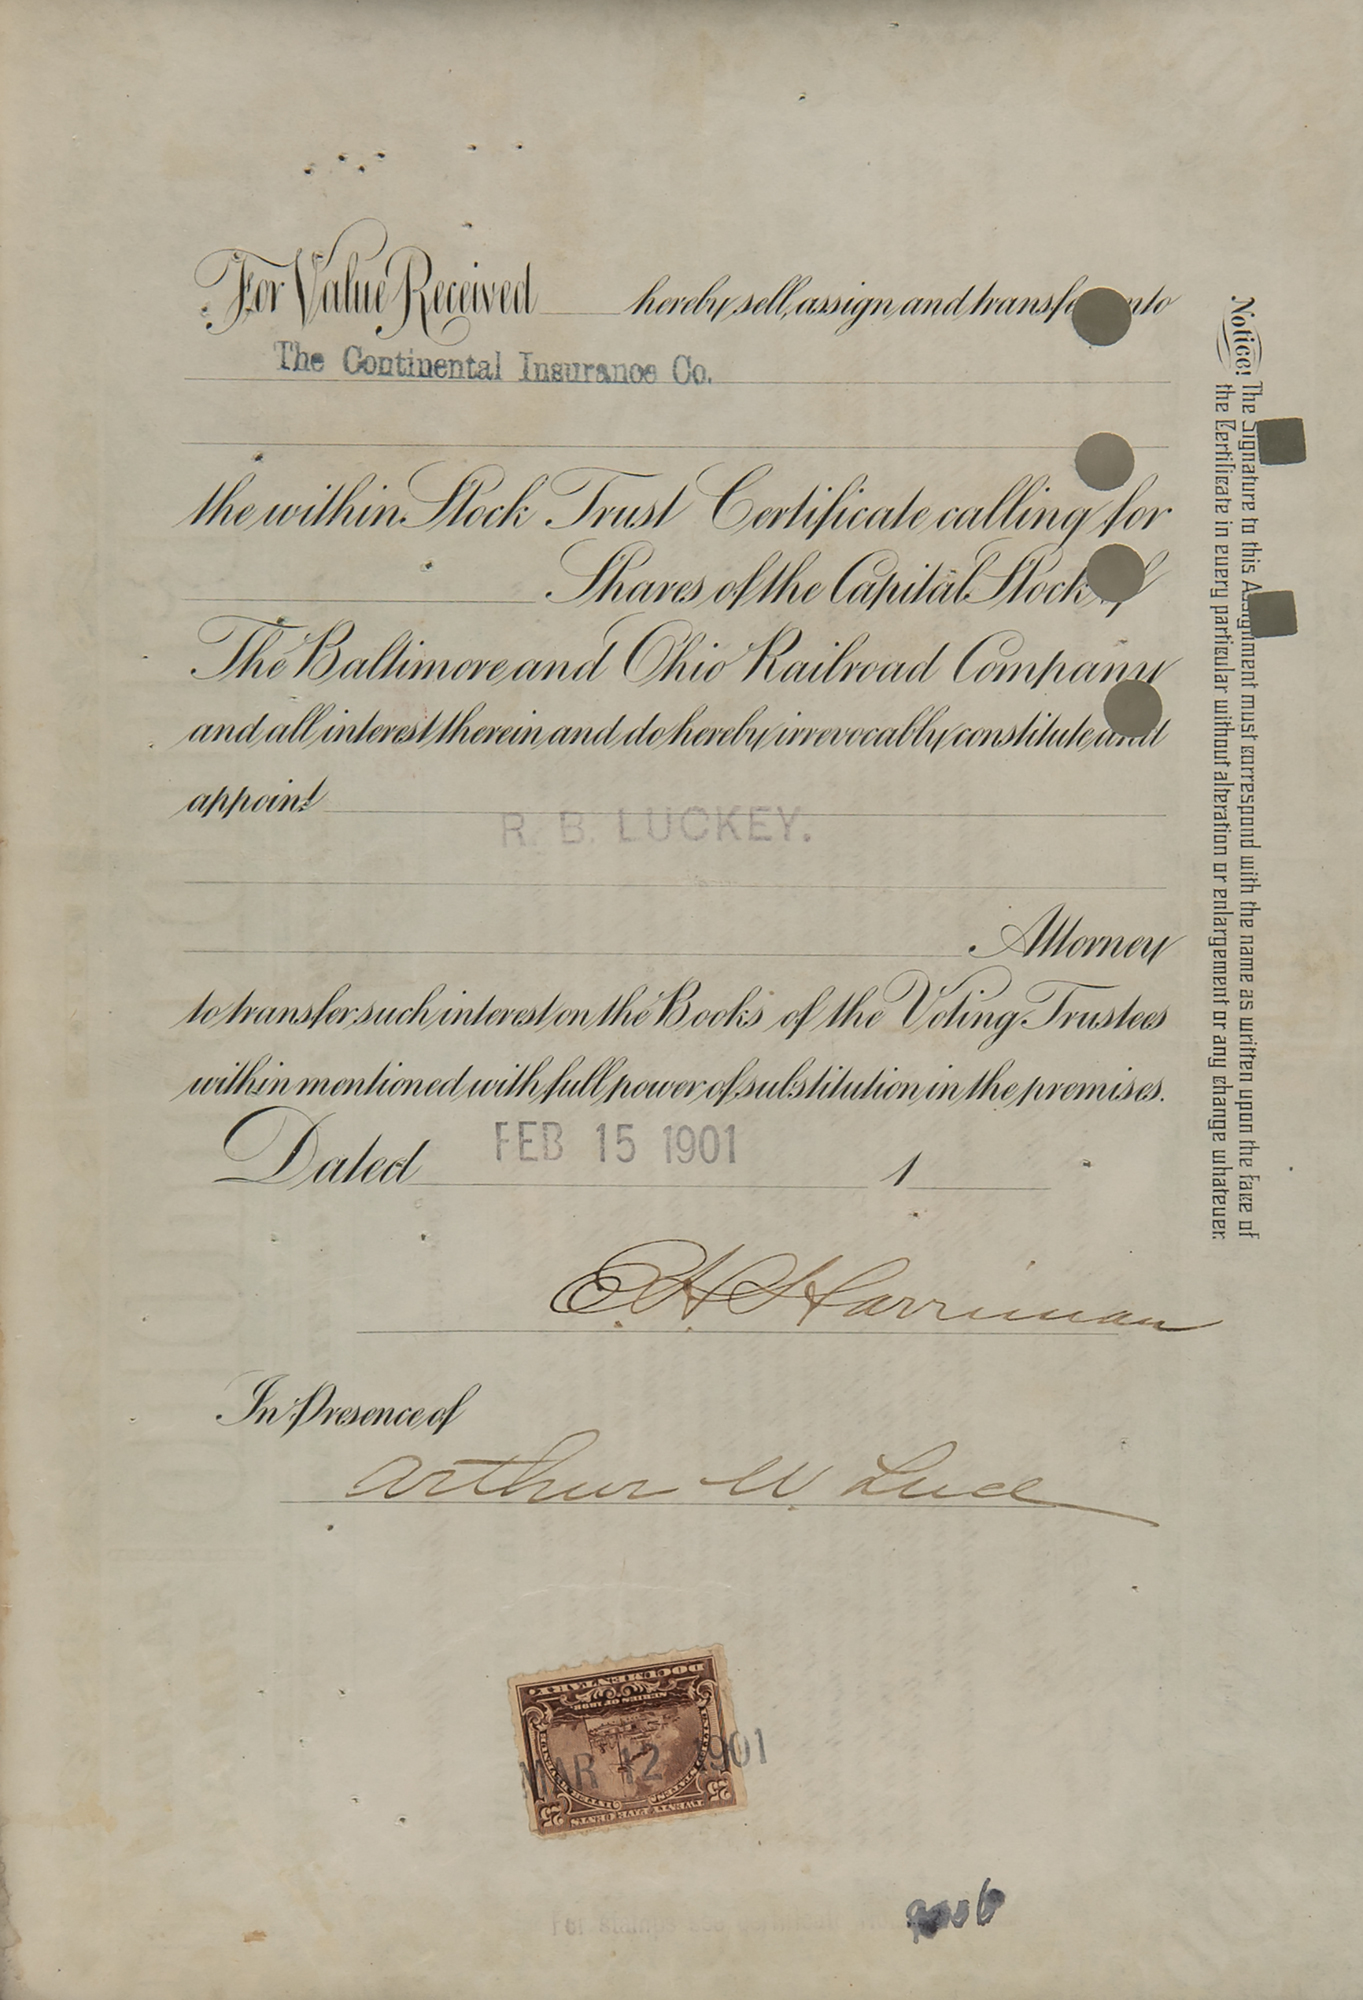 For Value Received hereby sell, assign and transfer unto
The Continental Insurance Co.
the within Stock Trust Certificate calling for
Shares of the Capital Stock of
The Baltimore and Ohio Railroad Company
and all interest therein and do hereby irrevocably constitute and
appoint
R. B. LUCKEY.
Attorney
to transfer such interest on the Books of the Voting Trustees
within mentioned with full power of substitution in the premises.
Dated FEB 15 1901 1
E H Harriman
In Presence of
Arthur W. Luce
DOCUMENTARY.
SERIES OF 1898.
MAR 12 1901
UNITED STATES INTER. REVENUE
25 25
TWENTY FIVE CENTS
For stamps see certificate
Notice! The Signature to this Assignment must correspond with the name as written upon the face of
the Certificate in every particular without alteration or enlargement or any change whatever.